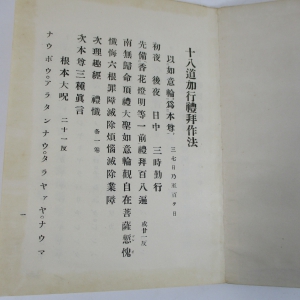 十八道加行禮拜作法
以如意輪爲本尊 三七日乃至百ケ日
初夜 後夜 日中 三時勤行
先備香花燈明等一前禮拜百八遍 或廿一反
南無歸命頂禮大聖如意輪觀自在菩薩慙愧
懺悔六根罪障滅除煩惱滅除業障
次理趣經 禮懺 各一卷
次本尊三種眞言
根本大呪 二十一反
ナウボウアラタンナウタラヤアヤナウマ